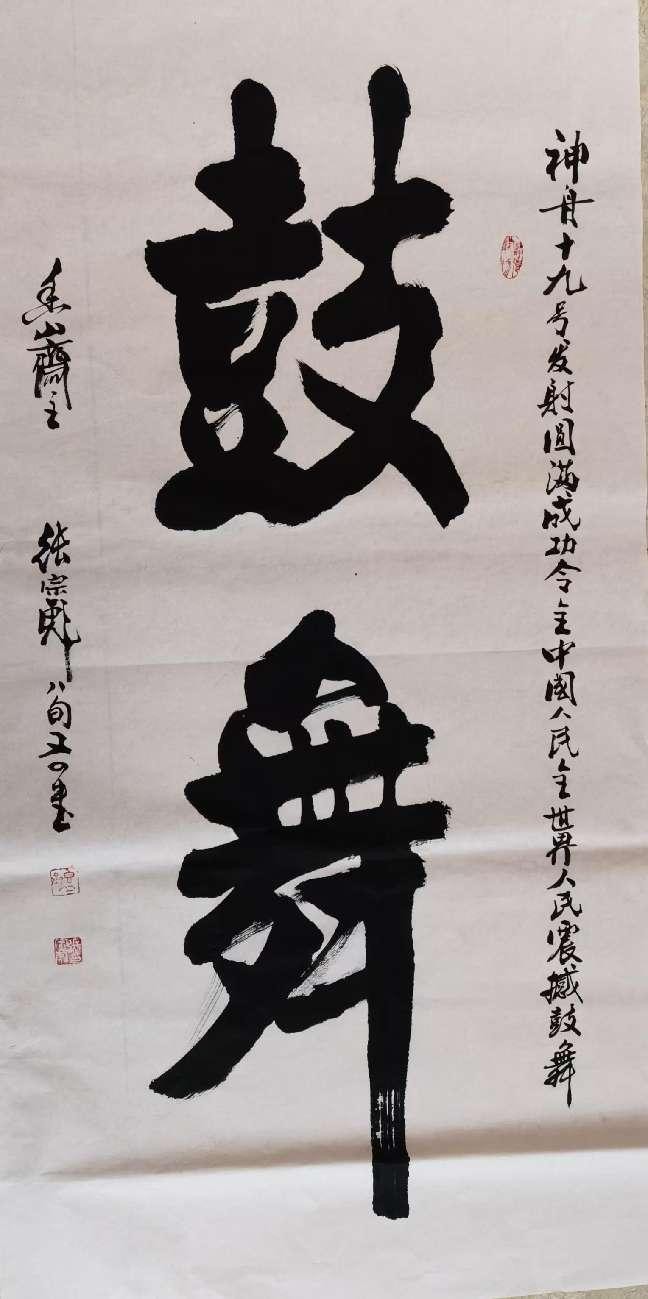 神舟十九号发射圆满成功令全中國人民全世界人民震撼鼓舞
鼓舞
香山齋主
張宗彪八旬又五書